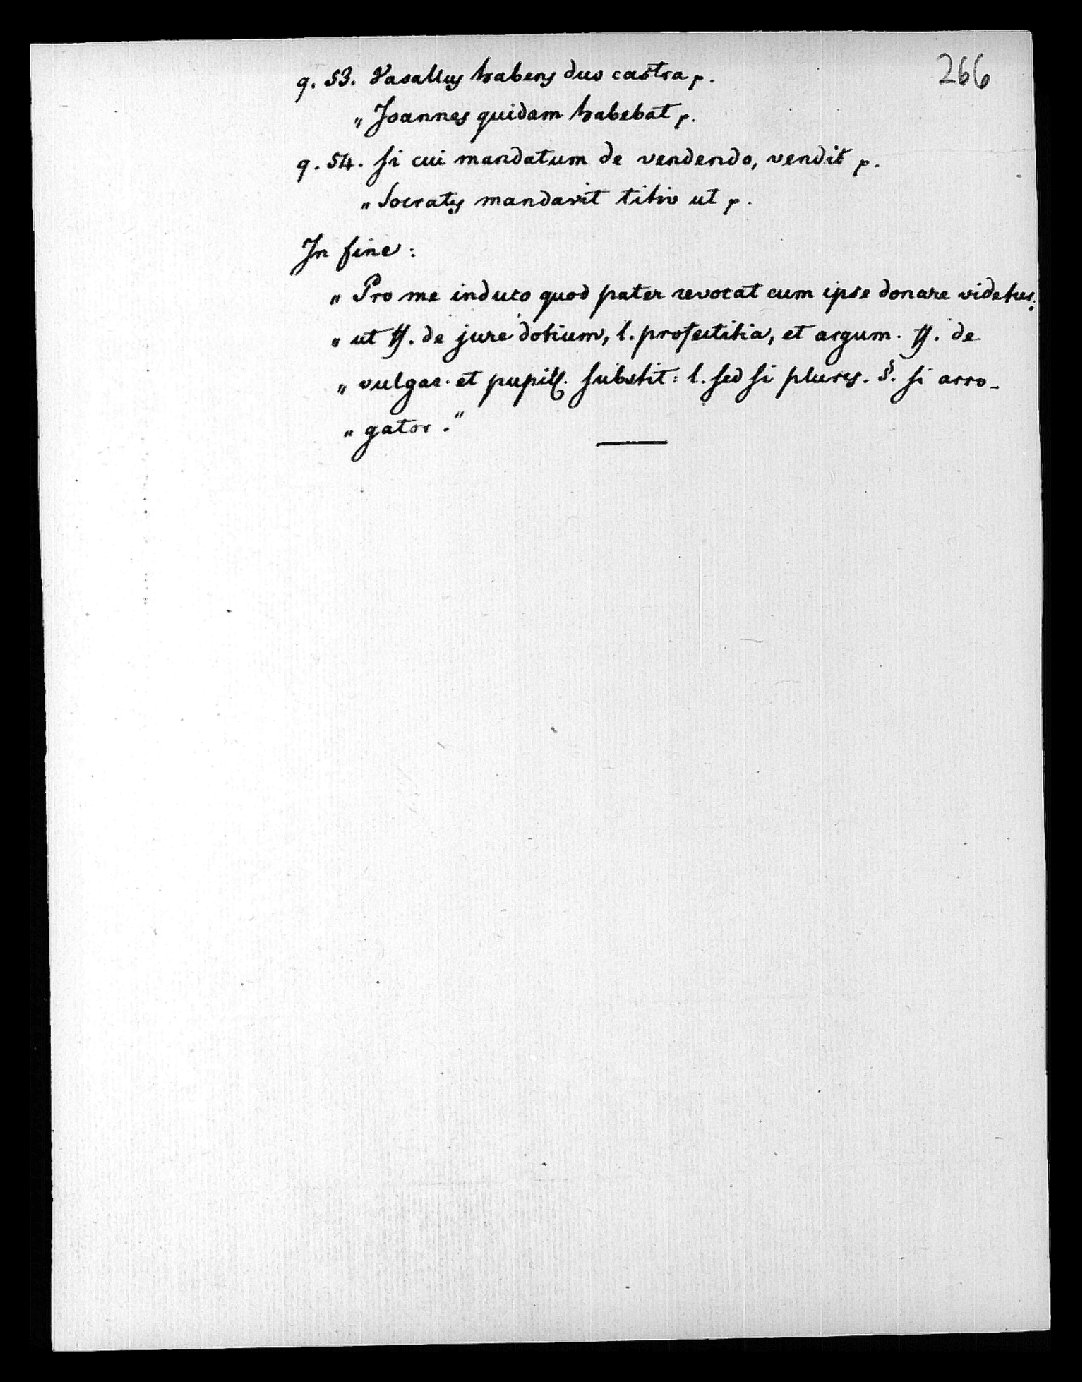 266
q. 53. Vasallus habens duo castra p.
„ Joannes quidam habebat p.
q. 54. Si cui mandatum de vendendo, vendit p.
„ Socrates mandavit titio ut p.
In fine:
„ Pro me induco quod pater revocat cum ipse donare videtur:
„ ut ff. de jure dotium, l. profectitia, et argum. ff. de
„ vulgar. et pupill. substit: l. sed si plures. §. si arro-
„ gator."